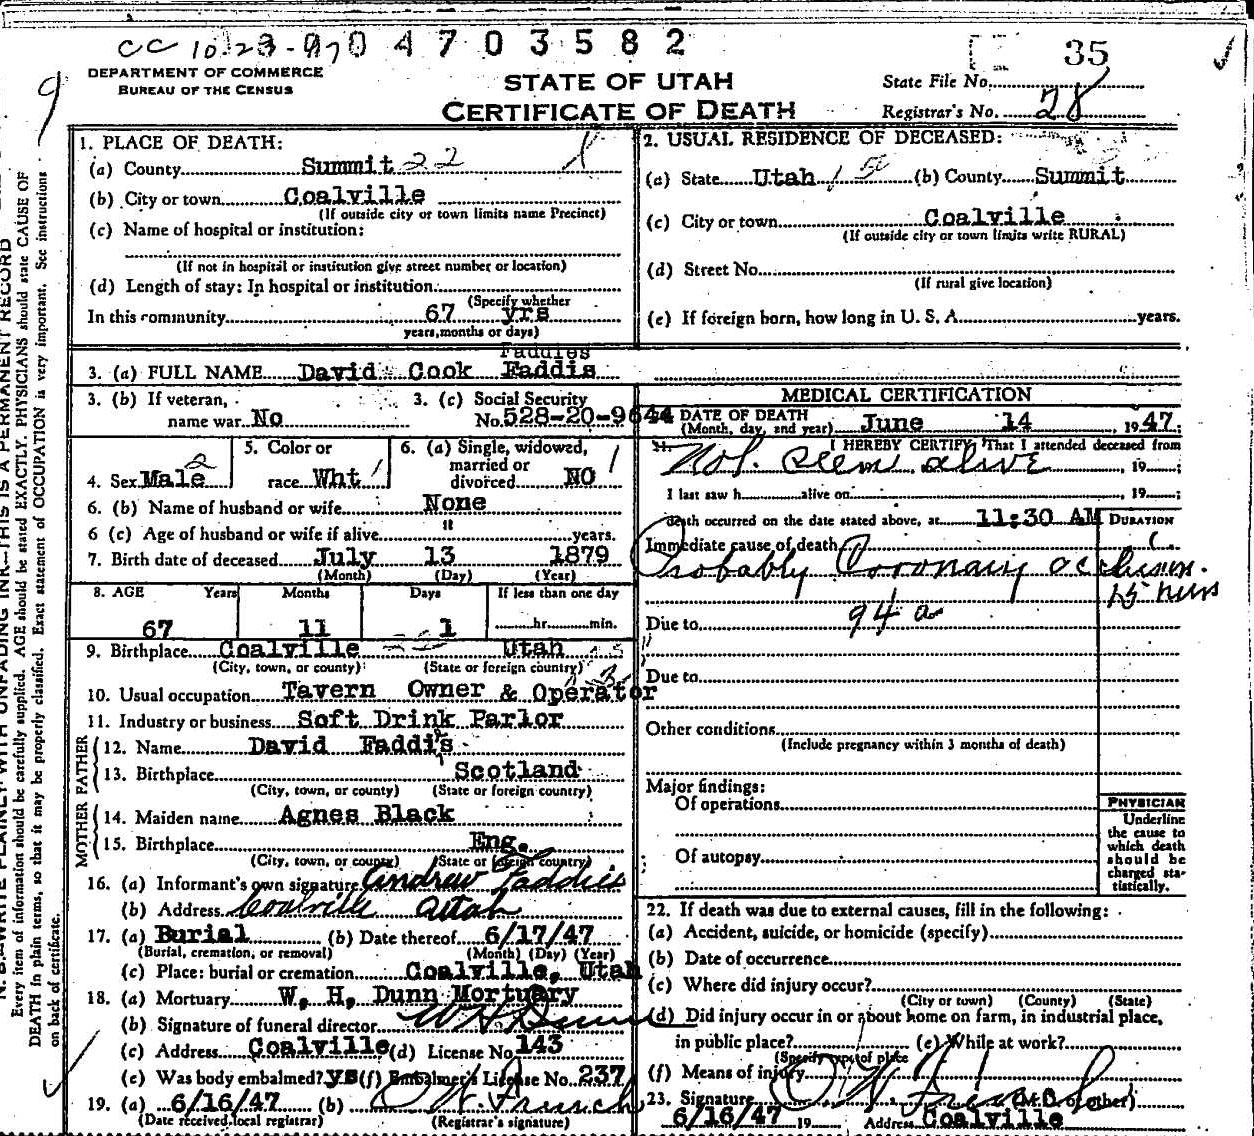 CC 10-23-97 0 4 7 0 3 5 8 2
35
DEPARTMENT OF COMMERCE
BUREAU OF THE CENSUS
STATE OF UTAH
CERTIFICATE OF DEATH
State File No.
Registrar's No. 28
1. PLACE OF DEATH:
(a) County Summit 22
(b) City or town Coalville
(If outside city or town limits name Precinct)
(c) Name of hospital or institution:
(If not in hospital or institution give street number or location)
(d) Length of stay: In hospital or institution
(Specify whether
In this community 67 yrs
years, months or days)
2. USUAL RESIDENCE OF DECEASED:
(a) State Utah (b) County Summit
(c) City or town Coalville
(If outside city or town limits write RURAL)
(d) Street No.
(If rural give location)
(e) If foreign born, how long in U. S. A. years.
Faddies
3. (a) FULL NAME David Cook Faddis
3. (b) If veteran, name war No
3. (c) Social Security No. 528-20-9644
4. Sex Male 2
5. Color or race Wht 1
6. (a) Single, widowed, married or divorced NO 1
6. (b) Name of husband or wife None
6 (c) Age of husband or wife if alive " years.
7. Birth date of deceased July 13 1879
(Month) (Day) (Year)
8. AGE Years Months Days If less than one day
67 11 1 hr. min.
9. Birthplace Coalville Utah
(City, town, or county) (State or foreign country)
10. Usual occupation Tavern Owner & Operator
11. Industry or business Soft Drink Parlor
FATHER
12. Name David Faddis
13. Birthplace Scotland
(City, town, or county) (State or foreign country)
MOTHER
14. Maiden name Agnes Black
15. Birthplace Eng.
(City, town, or county) (State or foreign country)
16. (a) Informant's own signature Andrew Faddies
(b) Address Coalville Utah
17. (a) Burial (b) Date thereof 6/17/47
(Burial, cremation, or removal) (Month) (Day) (Year)
(c) Place: burial or cremation Coalville, Utah
18. (a) Mortuary W. H. Dunn Mortuary
(b) Signature of funeral director W H Dunn
(c) Address Coalville (d) License No. 143
(e) Was body embalmed? ys (f) Embalmer's License No. 237
19. (a) 6/16/47 (b)
(Date received local registrar) (Registrar's signature)
MEDICAL CERTIFICATION
DATE OF DEATH June 14, 1947;
(Month, day, and year)
21. I HEREBY CERTIFY, That I attended deceased from
Not seen alive, 19 ;
I last saw h alive on , 19 ;
death occurred on the date stated above, at 11:30 AM
DURATION
Immediate cause of death
Probably Coronary occlusion.
Due to 94 a
Due to
Other conditions
(Include pregnancy within 3 months of death)
Major findings:
Of operations
Of autopsy
PHYSICIAN
Underline
the cause to
which death
should be
charged sta-
tistically.
22. If death was due to external causes, fill in the following:
(a) Accident, suicide, or homicide (specify)
(b) Date of occurrence
(c) Where did injury occur?
(City or town) (County) (State)
(d) Did injury occur in or about home on farm, in industrial place,
in public place? (e) While at work?
(Specify type of place
(f) Means of injury
23. Signature (M.D. or other)
6/16/47 19 Address Coalville
N. B.—WRITE PLAINLY WITH UNFADING INK—THIS IS A PERMANENT RECORD
Every item of information should be carefully supplied. AGE should be stated EXACTLY. PHYSICIANS should state CAUSE OF
DEATH in plain terms, so that it may be properly classified. Exact statement of OCCUPATION is very important. See instructions
on back of certificate.